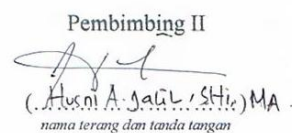 Pembimbing II
(Husni A. Jalil, SHi,) MA
nama terang dan tanda tangan